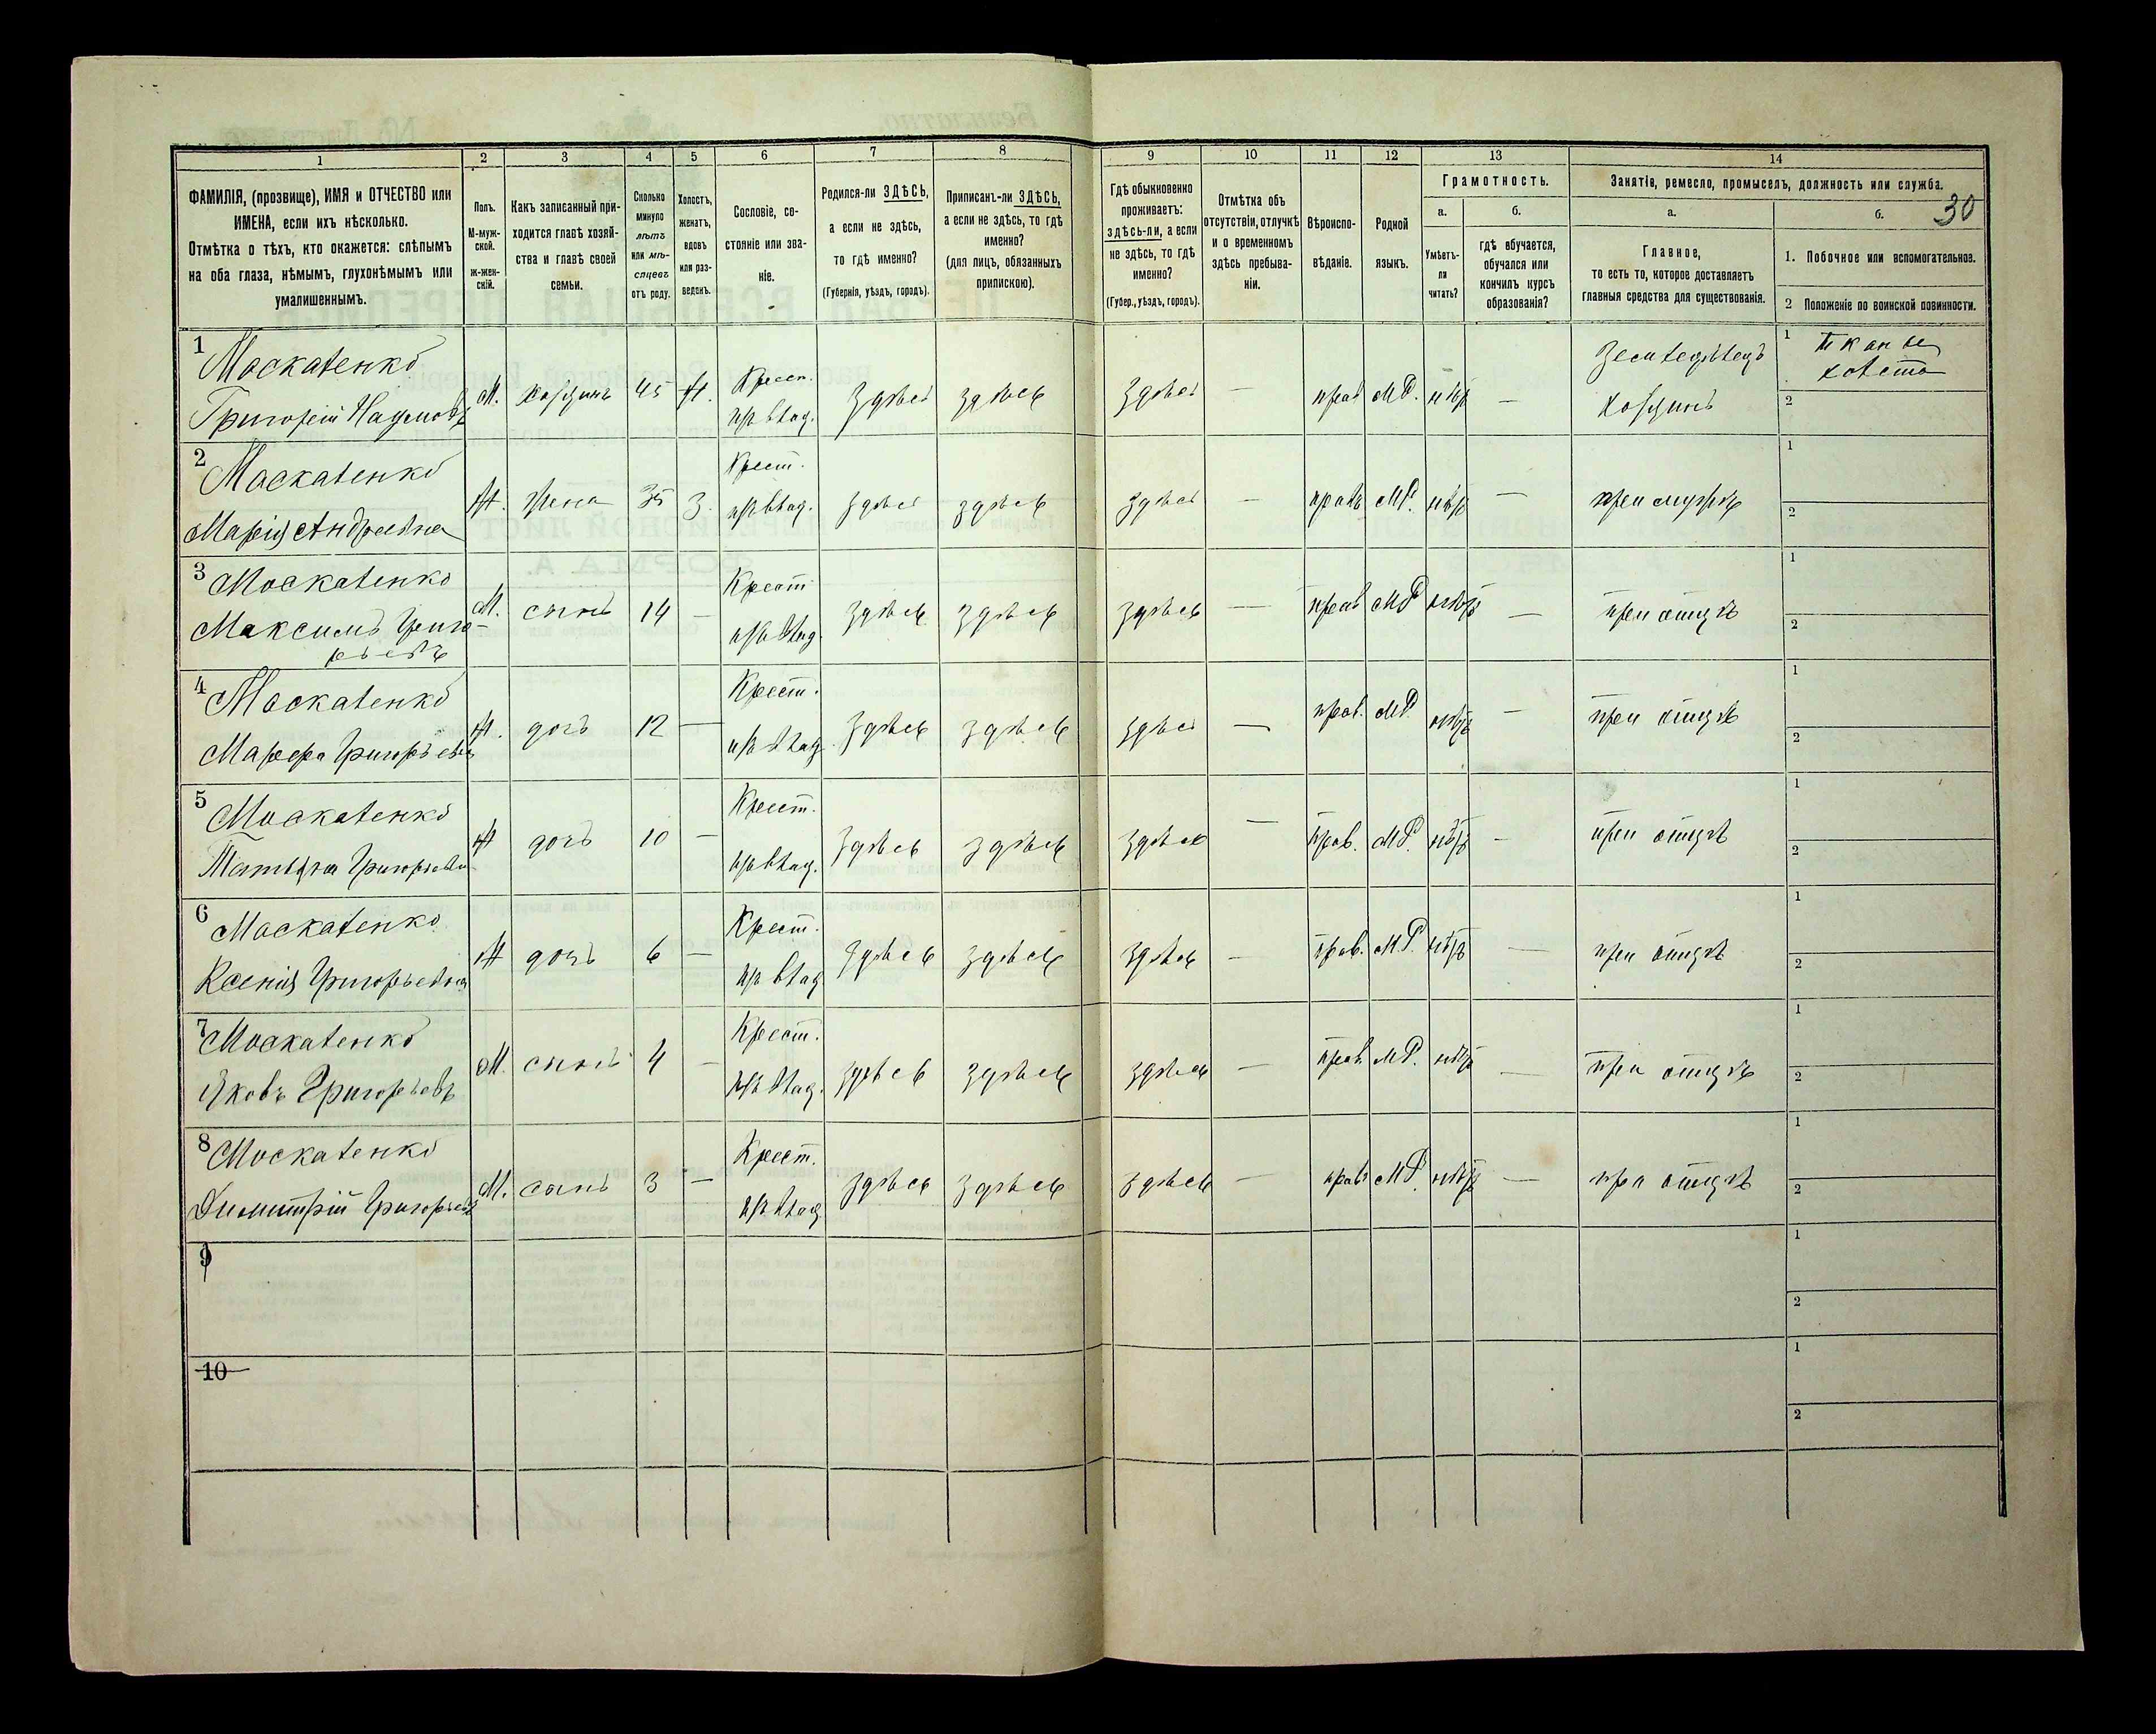 1 2 3 4 5 6 7 8 9 10 11 12 13 14
ФАМИЛІЯ, (прозвище), ИМЯ и ОТЧЕСТВО или
ИМЕНА, если ихъ нѣсколько.
Отмѣтка о тѣхъ, кто окажется: слѣпымъ
на оба глаза, нѣмымъ, глухонѣмымъ или
умалишеннымъ.
Полъ.
М-муж-
ской.
ж-жен-
скій.
Какъ записанный при-
ходится главѣ хозяй-
ства и главѣ своей
семьи.
Сколько
минуло
лѣтъ
или мѣ-
сяцевъ
отъ роду.
Холостъ,
женатъ,
вдовъ
или раз-
веденъ.
Сословіе, со-
стояніе или зва-
ніе.
Родился-ли ЗДѢСЬ,
а если не здѣсь,
то гдѣ именно?
(Губернія, уѣздъ, городъ).
Приписанъ-ли ЗДѢСЬ,
а если не здѣсь, то гдѣ
именно?
(для лицъ, обязанныхъ
припискою).
Гдѣ обыкновенно
проживаетъ:
здѣсь-ли, а если
не здѣсь, то гдѣ
именно?
(Губер., уѣздъ, городъ).
Отмѣтка объ
отсутствіи, отлучкѣ
и о временномъ
здѣсь пребыва-
ніи.
Вѣроиспо-
вѣданіе.
Родной
языкъ.
Грамотность.
а.
Умѣетъ-
ли
читать?
б.
гдѣ обучается,
обучался или
кончилъ курсъ
образованія?
Занятіе, ремесло, промыселъ, должность или служба.
30
а.
Главное,
то есть то, которое доставляетъ
главныя средства для существованія.
б.
1. Побочное или вспомогательное.
2 Положеніе по воинской повинности.
1 Москаленко
Григорій Наумовъ
М. хозяинъ 45 Ж. Крест. здѣсь здѣсь здѣсь — прав М.Р. нѣтъ —
Земледѣлецъ
хозяинъ
1
холста
2
2 Москаленко
Марія Андреевна
Ж. Жена 35 З. Крест. здѣсь здѣсь здѣсь — прав М.Р. нѣтъ — при мужѣ
1
2
3 Москаленко
Максимъ Григо-
рьевъ
М. сынъ 14 — Крест здѣсь здѣсь здѣсь — прав М.Р. нѣтъ — при отцѣ
1
2
4 Москаленко
Марфа Григорьевна
Ж. дочь 12 — Крест. здѣсь здѣсь здѣсь — прав. М.Р. нѣтъ — при отцѣ
1
2
5 Москаленко
Татьяна Григорьевна
Ж дочь 10 — Крест. здѣсь здѣсь здѣсь — прав. М.Р. нѣтъ — при отцѣ
1
2
6 Москаленко
Ксенія Григорьевна
Ж дочь 6 — Крест. здѣсь здѣсь здѣсь — прав. М.Р. нѣтъ — при отцѣ
1
2
7 Москаленко
Яковъ Григорьевъ
М. сынъ 4 — Крест. здѣсь здѣсь здѣсь — прав М.Р. нѣтъ — при отцѣ
1
2
8 Москаленко
Димитрій Григорьевъ
М. сынъ 3 — Крест. здѣсь здѣсь здѣсь — прав М.Р. нѣтъ — при отцѣ
1
2
9
1
2
10
1
2